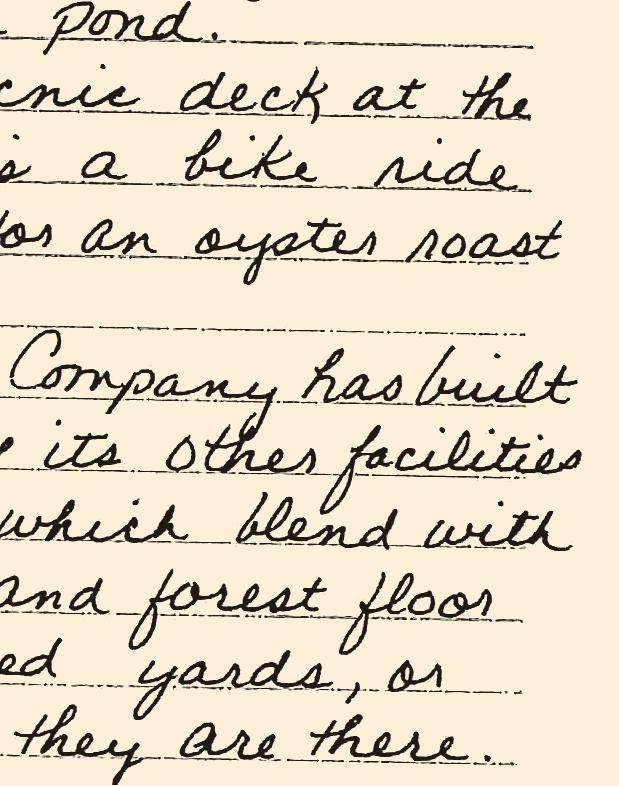 pond.
cnic deck at the
s a bike ride
for an oyster roast
Company has built
its other facilities
which blend with
and forest floor
ed yards, or
they are there.